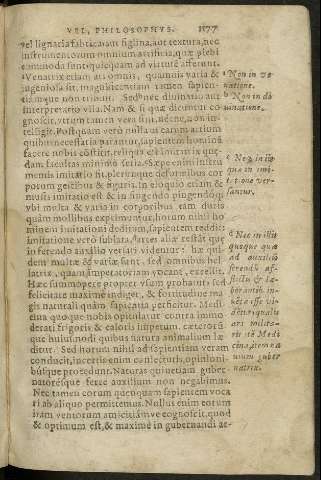 VEL, PHILOSOPHVS. 1177
vel lignaria fabricatura, figlina, aut textura, nec
instrumentorum omnium artificia, quæ plebi
commoda sunt quicquam ad virtutē afferunt.
Venatrix etiam ars omnis, quamuis varia &
ingeniosa sit, magnificentiam tamen sapien-
tiamque non tribuit. Sed nec diuinatio aut
interpretatio vlla. Nam & si quæ dicuntur co-
gnoscit, vtrum tamen vera sint, nécne, non in-
telligit. Postquam verò nulla ex earum artium
quibus necessaria parantur, sapientem hominē
facere nobis cōstitit, reliqua est ludicra quæ-
dam facultas minimè seria. Sæpe enim instru-
mentis imitatio fit, plerumque deformibus cor
porum gestibus & figuris. In eloquio etiam &
musis imitatio est & in fingendo pingendoq́;
vbi multa & varia in corporibus tam duris
quàm mollibus exprimuntur, horum nihil ho
minem imitationi deditum, sapientem reddit:
imitatione verò sublata, artes aliæ restāt quæ
in ferendo auxilio versari videntur: hæ qui-
dem multæ & variæ sunt, sed omnibus bel-
latrix, quam imperatoriam vocant, excellit.
Hæc summopere propter vsum probant: sed
felicitate maxime indiget, & fortitudine ma
gis naturali quàm sapientia perficitur. Medi-
cina quoque nobis opitulatur contra immo
derati frigoris & caloris impetum, cæteráque
huiusmodi quibus natura animalium læ
ditur. Sed horum nihil ad sapientiam veram
conducit, incertis enim coniecturis, opinioni-
búsque procedunt. Naturas quin etiam guber
natorésque ferre auxilium non negabimus.
Nec tamen eorum quenquam sapientem voca
ri ab aliquo permittemus. Nullus enim eorum
iram ventorum amicitiámve cognoscit, quod
& optimum est, & maximè in gubernandi ar-
Non in ve
natione.
Non in di-
uinatione.
Neq́; in iis
quæ in imi-
tatione ver-
santur.
Nec in illis
quoque quæ
ad auxiliū
ferendū af-
flictis & la-
borantib. in-
uēta esse vi-
dētur: qualis
ars milita-
ris & Medi
cina, item na
uium guber
natrix.